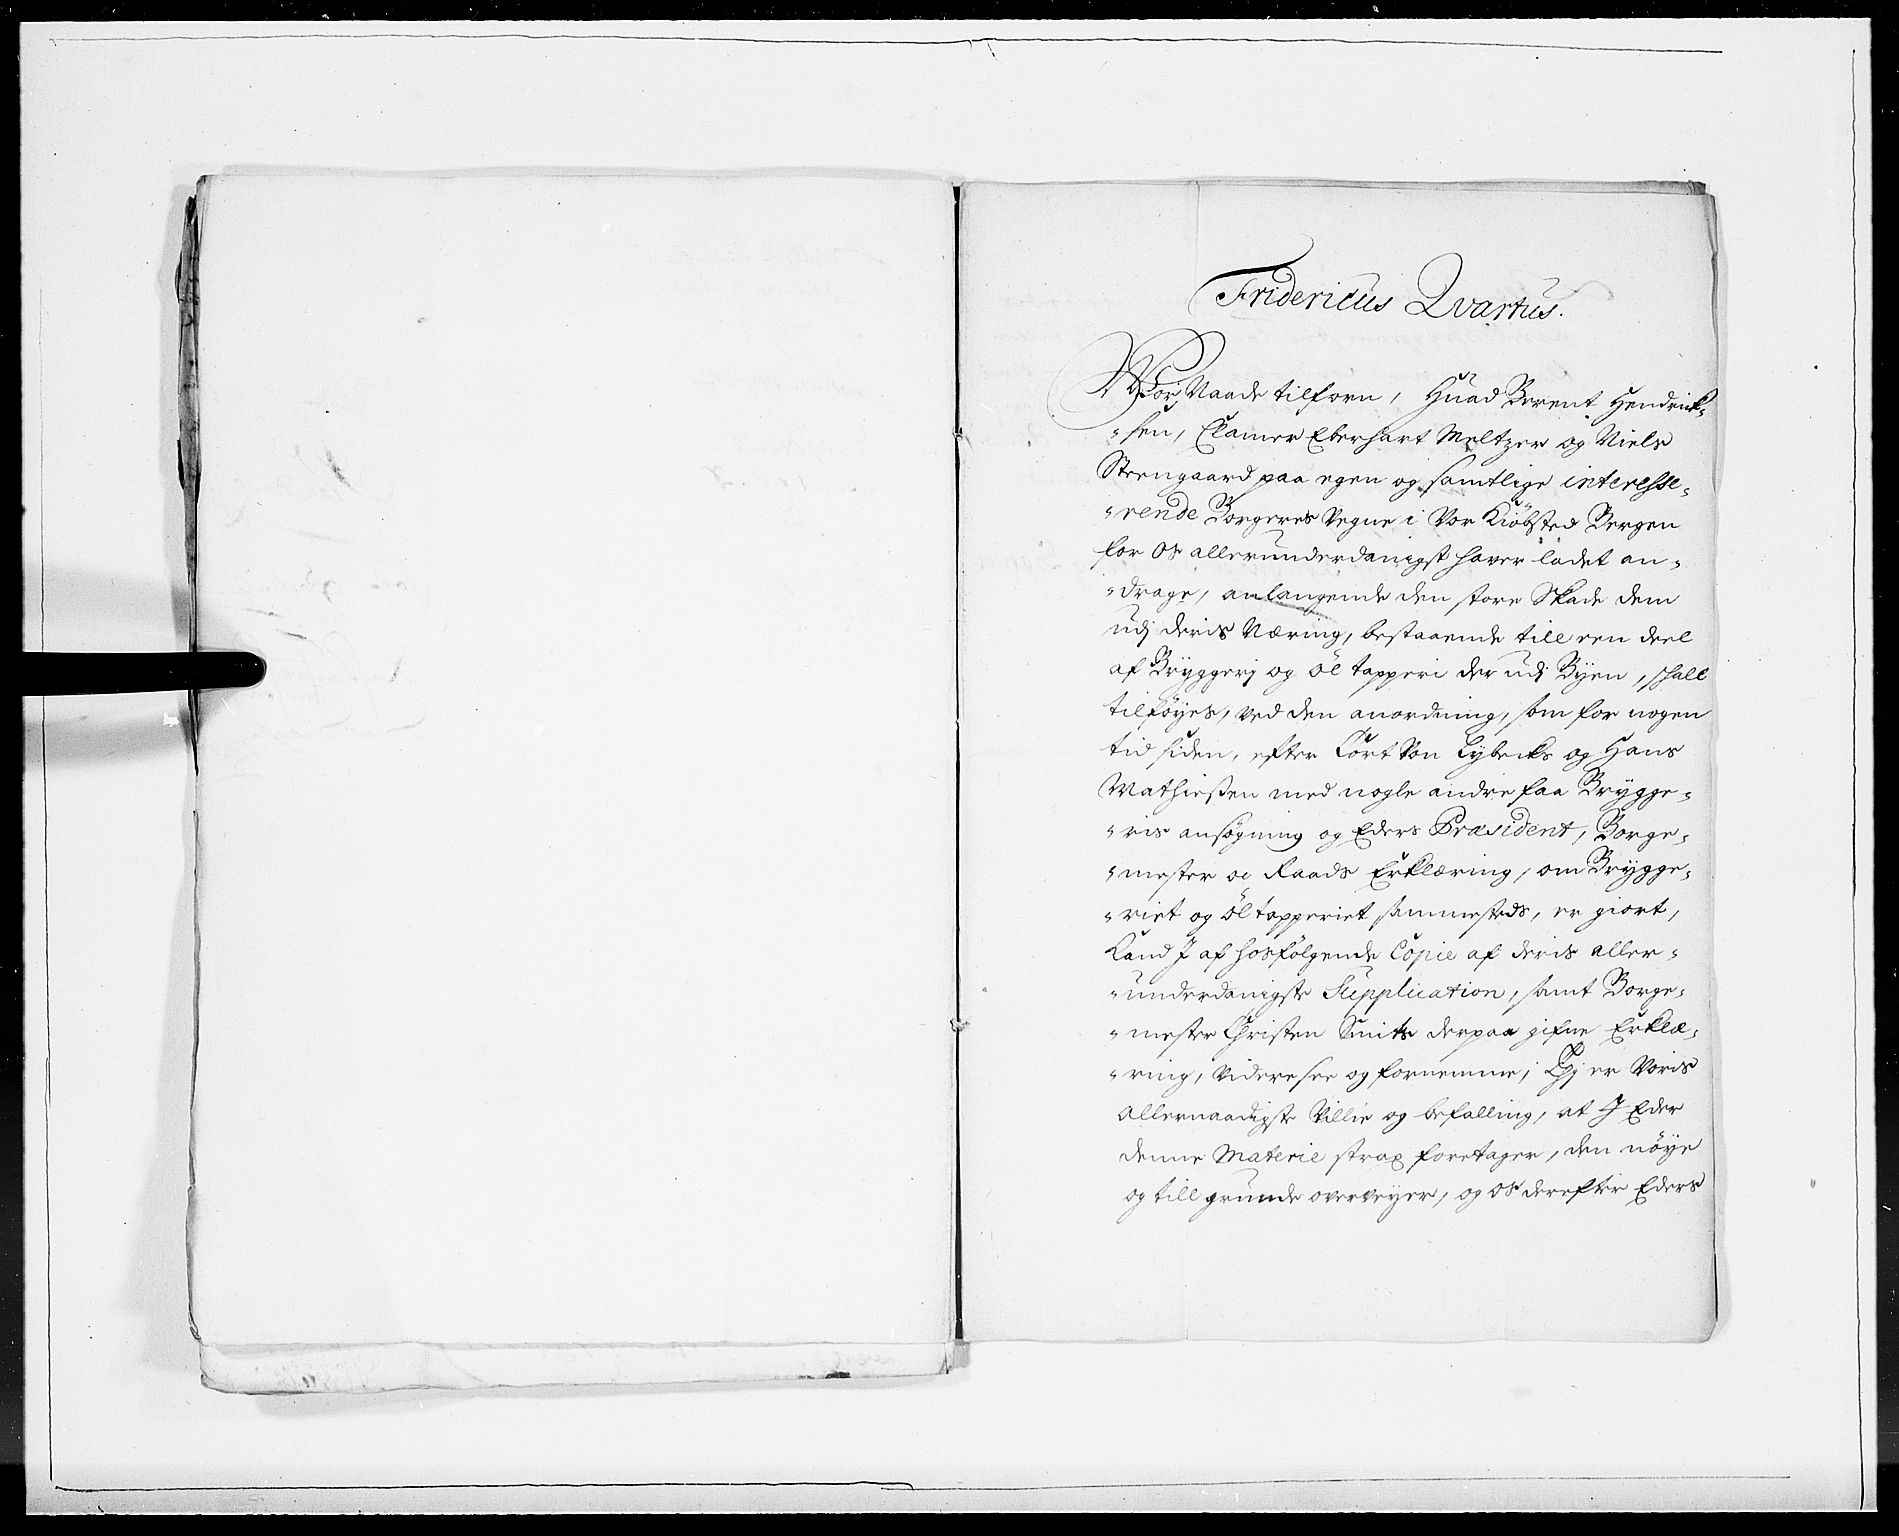 Fridericus Qvartus.
Vor Naade tilforn, Huad Berent Hendrick-
-sen, Clamer Eberhart Meltzer og Niels
Steengaard paa egen og samtlige interesse-
-rende Borgeres Vegne i Vor Kiöbsted Bergen
for Os allerunderdanigst haver ladet an-
-drage, anlangende den store Skade dem
udj deris Næring, bestaaende till een deel
af Bryggerj og öl tapperi der udj Byen, schall
tilföyes, ved den anordning, som for nogen
tid siden, efter Cort Von Lybecks og Hans
Mathiesen med nogle andre faa Brygge-
-ris ansögning og Eders Præsident, Borge-
-mester oc Raads Erklæring, om Brygge-
-riet og öl tapperiet sammesteds, er giort,
Kand J af hosfölgende Copie af deris aller-
-underdanigste Supplication, samt Borge-
-mester Christen Smits derpaa gifne Erklæ-
-ring, videre see og fornemme; Thj er Voris
allernaadigste Villie og befalling, at J Eder
denne Materie strax foretager, den nöye
og till grunde overveyer, og Os derefter Eders